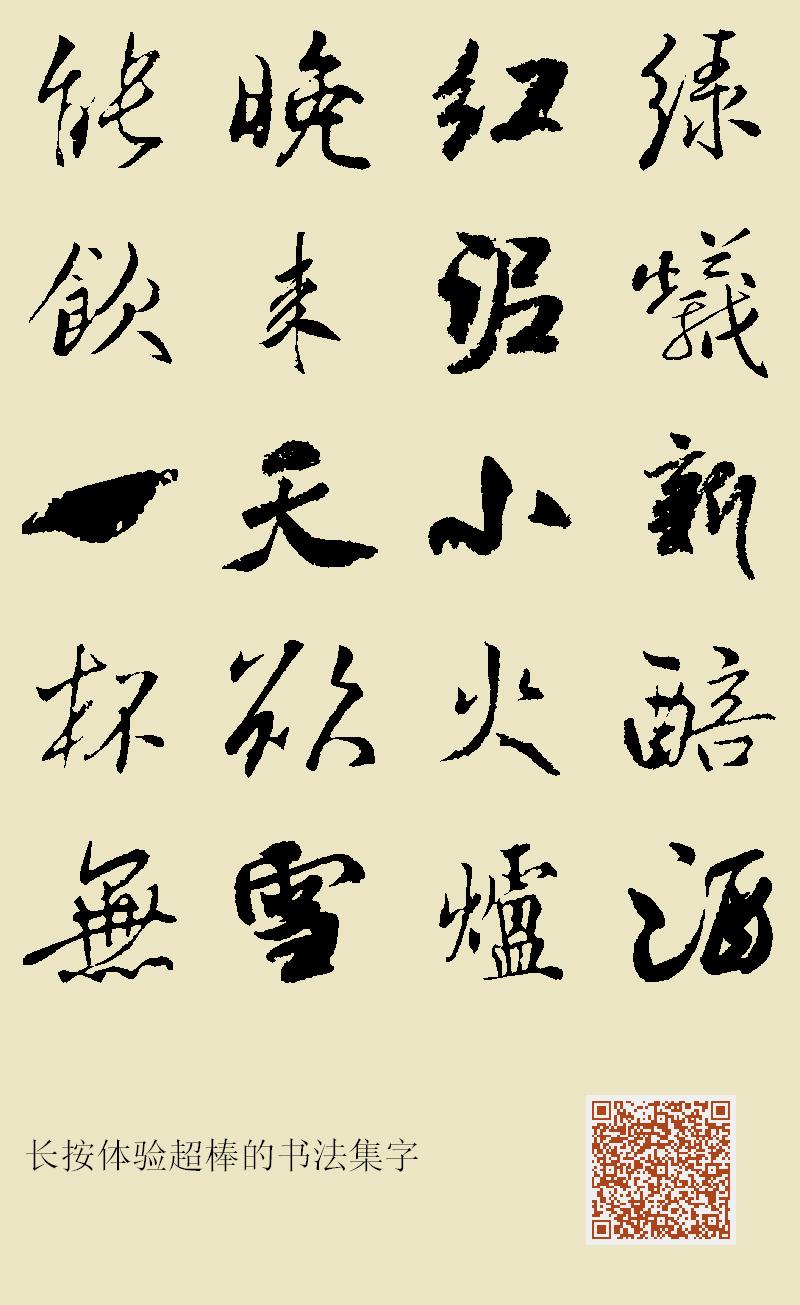 綠蟻新醅酒
紅泥小火爐
晚來天欲雪
能飲一杯無
长按体验超棒的书法集字